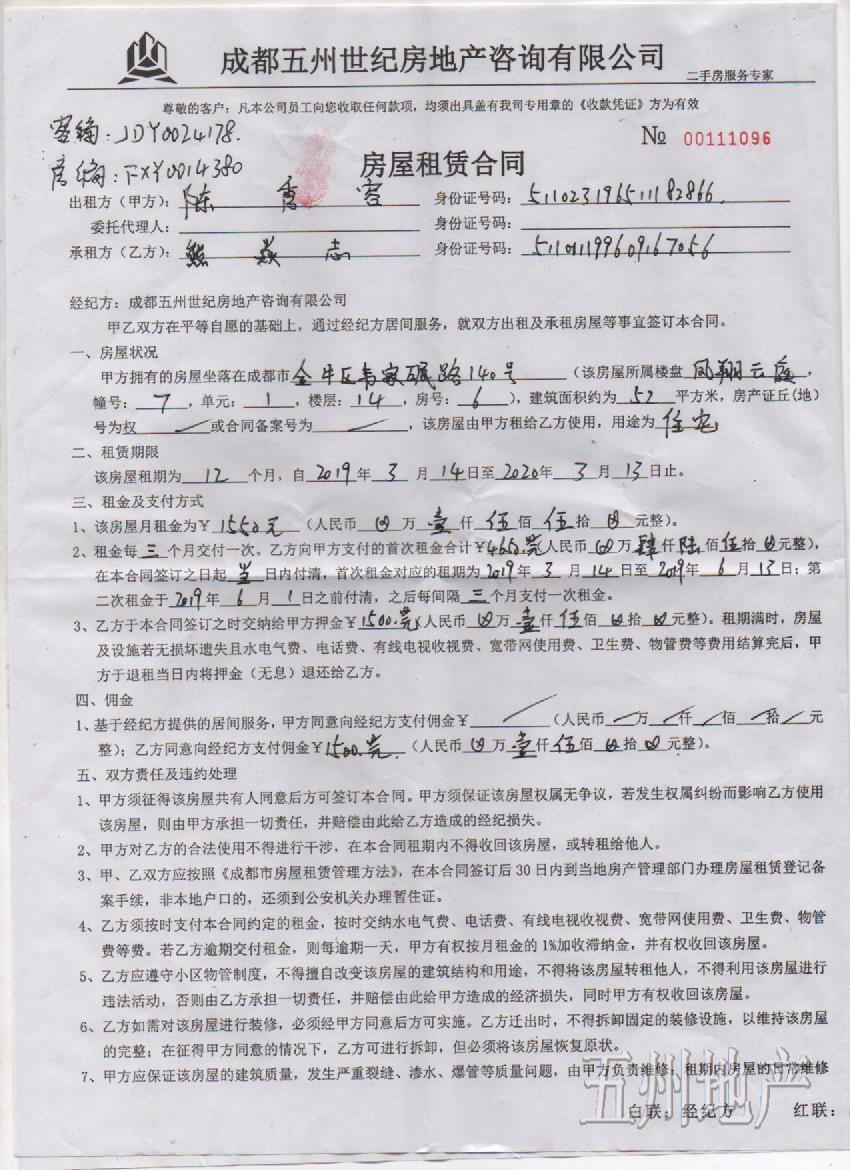 成都五州世纪房地产咨询有限公司
二手房服务专家
尊敬的客户：凡本公司员工向您收取任何款项，均须出具盖有我司专用章的《收款凭证》方为有效
客编：JDY0024178.
№ 00111096
房编：FXY0014380
房屋租赁合同
出租方（甲方）：陈秀容 身份证号码：511023196511182866.
委托代理人： 身份证号码：
承租方（乙方）：熊 志 身份证号码：511011199609167056
经纪方：成都五州世纪房地产咨询有限公司
甲乙双方在平等自愿的基础上，通过经纪方居间服务，就双方出租及承租房屋等事宜签订本合同。
一、房屋状况
甲方拥有的房屋坐落在成都市金牛区韦家碾路140号（该房屋所属楼盘凤翔云庭，
幢号：7，单元：1，楼层：14，房号：6），建筑面积约为52平方米，房产证丘(地)
号为权／或合同备案号为／，该房屋由甲方租给乙方使用，用途为住宅
二、租赁期限
该房屋租期为12个月，自2019年3月14日至2020年3月13日止。
三、租金及支付方式
1、该房屋月租金为￥1550元（人民币 万壹仟伍佰伍拾 元整）。
2、租金每三个月交付一次。乙方向甲方支付的首次租金合计￥4650元人民币 万肆仟陆佰伍拾 元整），
在本合同签订之日起当日内付清，首次租金对应的租期为2019年3月14日至2019年6月13日；第
二次租金于2019年6月1日之前付清，之后每间隔三个月支付一次租金。
3、乙方于本合同签订之时交纳给甲方押金￥1500元（人民币 万壹仟伍佰 拾 元整）。租期满时，房屋
及设施若无损坏遗失且水电气费、电话费、有线电视收视费、宽带网使用费、卫生费、物管费等费用结算完后，甲
方于退租当日内将押金（无息）退还给乙方。
四、佣金
1、基于经纪方提供的居间服务，甲方同意向经纪方支付佣金￥／（人民币／万／仟／佰／拾／元
整）；乙方同意向经纪方支付佣金￥1500元.（人民币 万壹仟伍佰 拾 元整）。
五、双方责任及违约处理
1、甲方须征得该房屋共有人同意后方可签订本合同。甲方须保证该房屋权属无争议，若发生权属纠纷而影响乙方使用
该房屋，则由甲方承担一切责任，并赔偿由此给乙方造成的经纪损失。
2、甲方对乙方的合法使用不得进行干涉，在本合同租期内不得收回该房屋，或转租给他人。
3、甲、乙双方应按照《成都市房屋租赁管理方法》，在本合同签订后30日内到当地房产管理部门办理房屋租赁登记备
案手续，非本地户口的，还须到公安机关办理暂住证。
4、乙方须按时支付本合同约定的租金，按时交纳水电气费、电话费、有线电视收视费、宽带网使用费、卫生费、物管
费等费。若乙方逾期交付租金，则每逾期一天，甲方有权按月租金的1%加收滞纳金，并有权收回该房屋。
5、乙方应遵守小区物管制度，不得擅自改变该房屋的建筑结构和用途，不得将该房屋转租他人，不得利用该房屋进行
违法活动，否则由乙方承担一切责任，并赔偿由此给甲方造成的经济损失，同时甲方有权收回该房屋。
6、乙方如需对该房屋进行装修，必须经甲方同意后方可实施。乙方迁出时，不得拆卸固定的装修设施，以维持该房屋
的完整；在征得甲方同意的情况下，乙方可进行拆卸，但必须将该房屋恢复原状。
7、甲方应保证该房屋的建筑质量，发生严重裂缝、渗水、爆管等质量问题，由甲方负责维修；租期内房屋的日常维修
五州地产
白联：经纪方 红联：